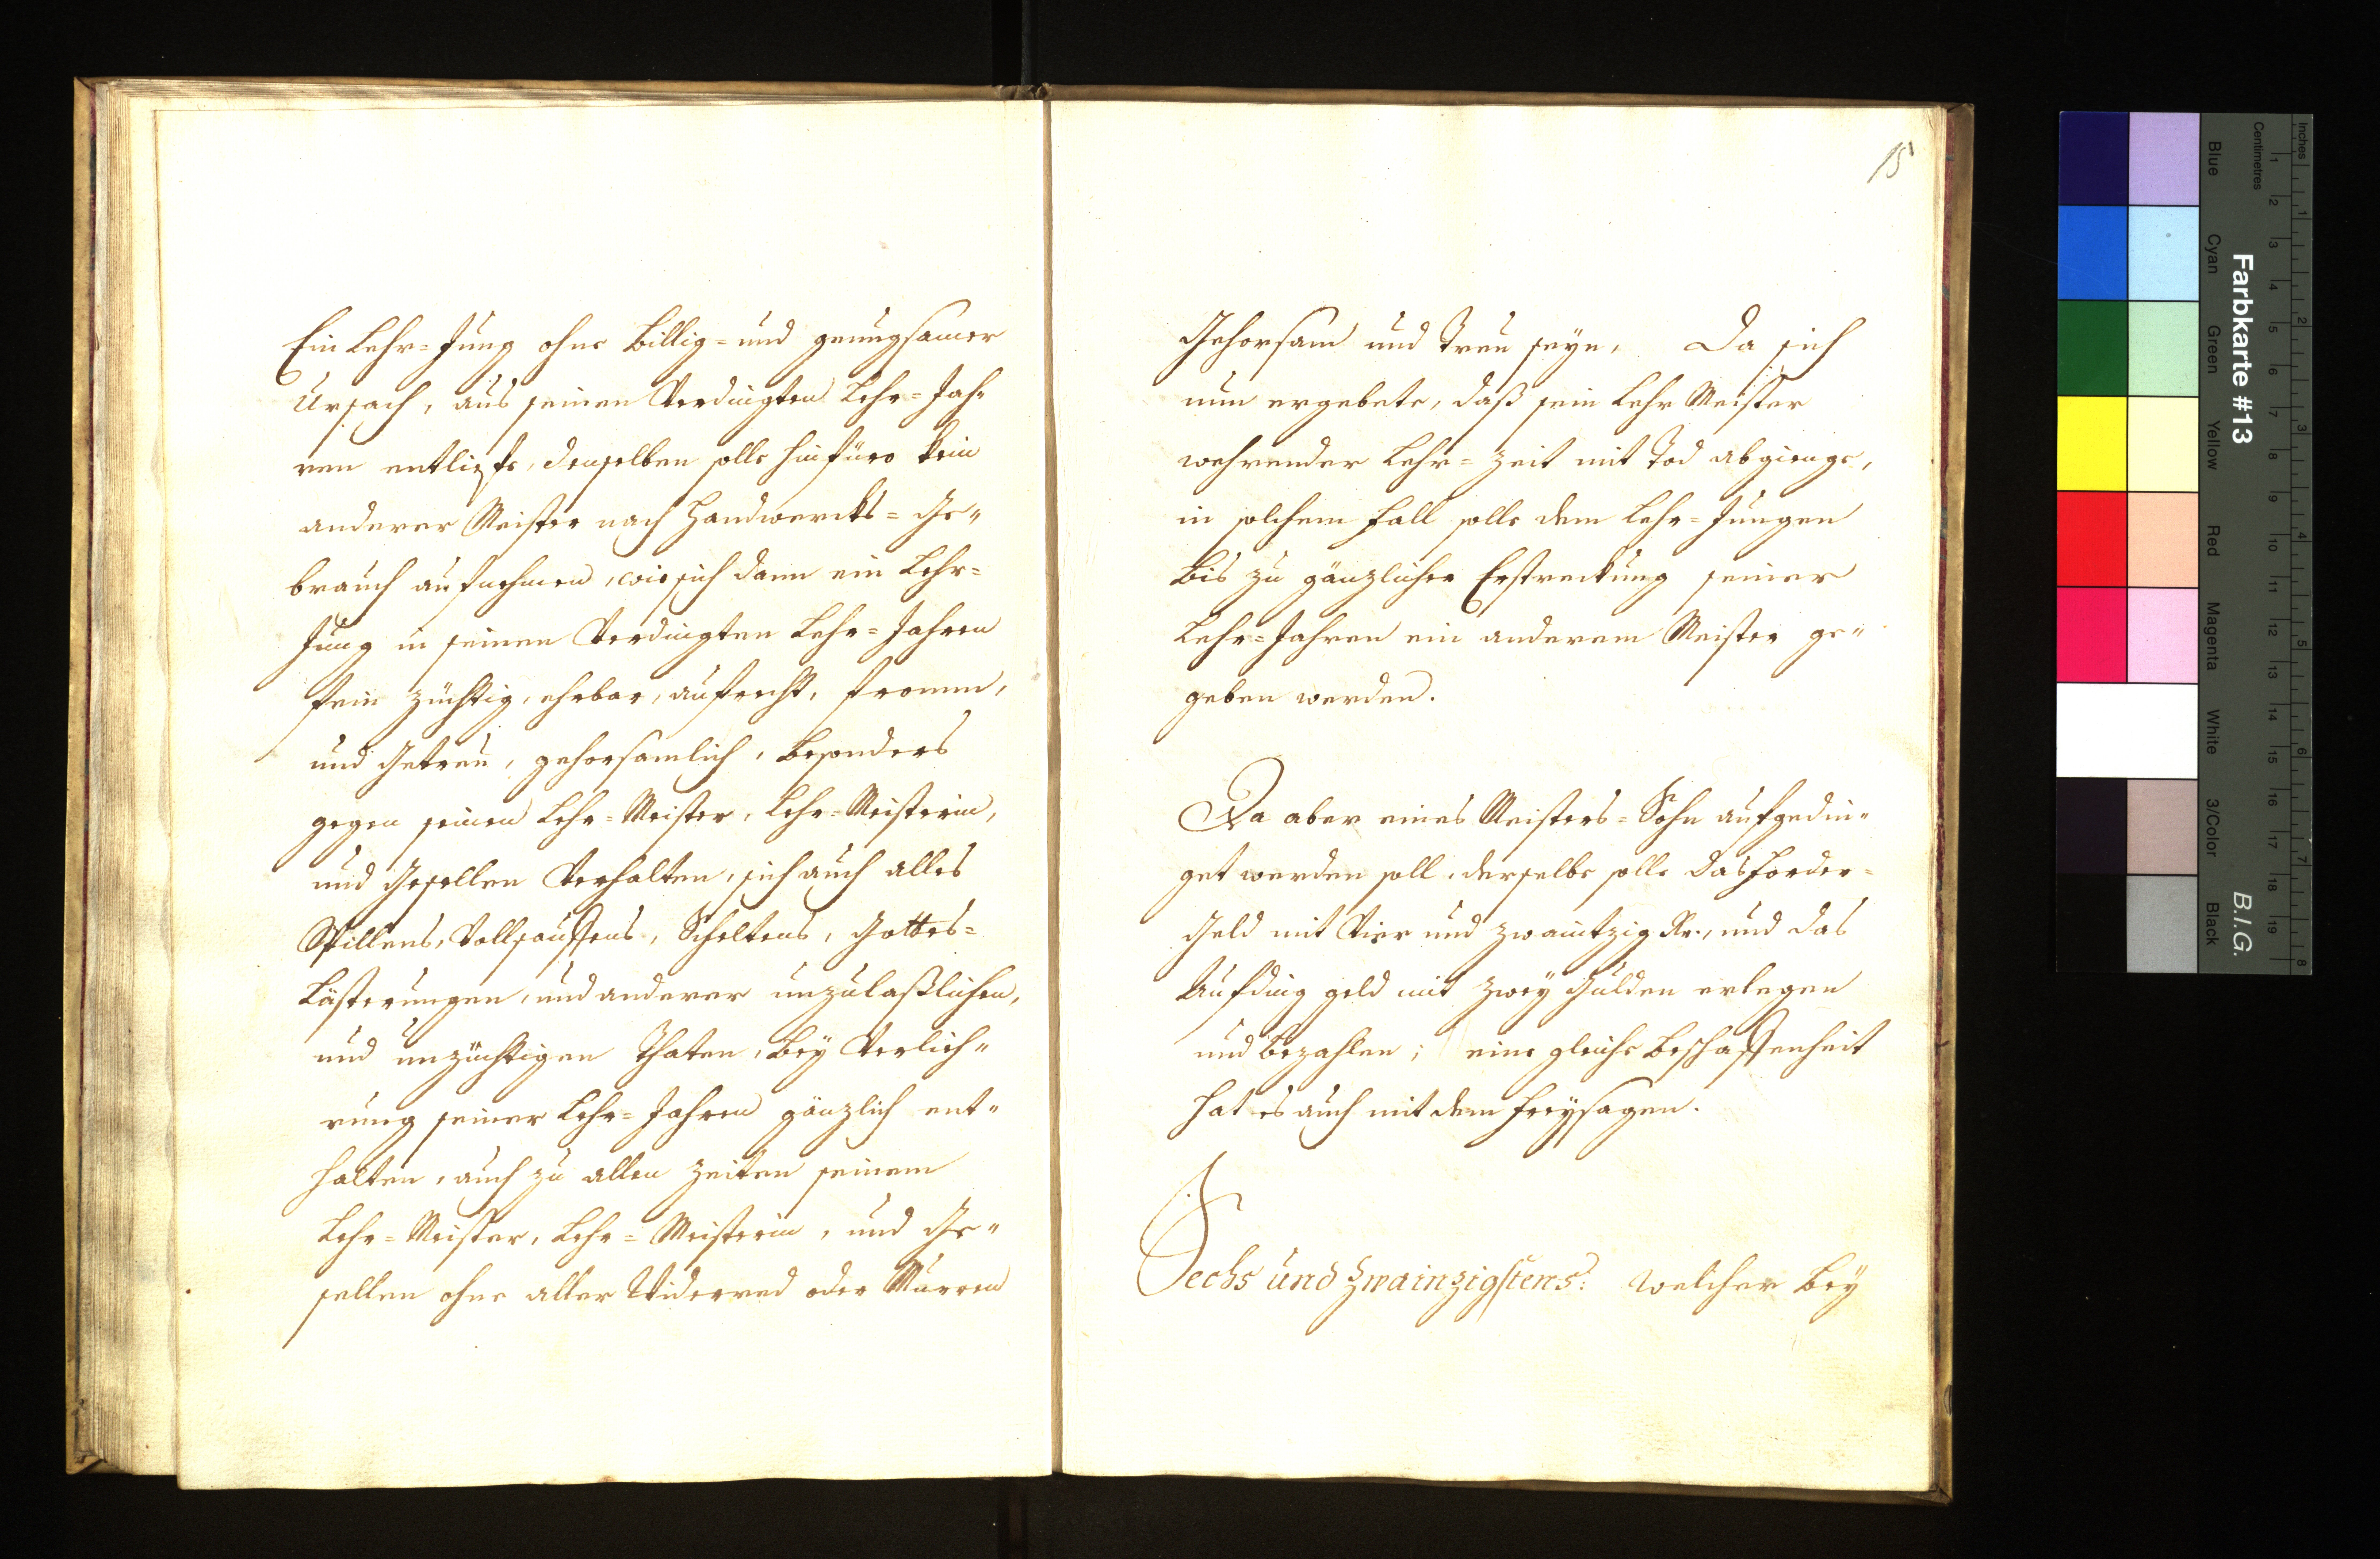 Ein Lehr=Jung ohne billig= und genungsamer
Ursach, aus seinen Verdingten Lehr=Jah„
ren entlieffe, denselben solle hinfüro kein
anderer Meister nach Handwercks=Ge„
brauch aufnehmen, wie sich dann ein Lehr=
Jung in seinen Verdingten Lehr=Jahren
fein züchtig, ehrbar, aufrecht, fromm,
und Getreu, gehorsamlich, besonders
gegen seinen Lehr=Meister, Lehr=Meisterin,
und Gesellen Verhalten, sich auch alles
Spillens, Vollsauffens, Scheltens, Gottes=
Lästerungen, und anderer unzulaßlichen,
und unzüchtigen Thaten, bey Verlieh„
rung seiner Lehr=Jahren gänzlich ent„
halten, auch zu allen Zeiten seinem
Lehr=Meister, Lehr=Meisterin, und Ge„
sellen ohne aller Widerred oder Murren
15
Gehorsam und Treu seyn, Da sich
nun ergebete, daß sein Lehr Meister
wehrender Lehr=Zeit mit Tod abgienge,
in solchem Fall solle dem Lehr=Jungen
bis zu gänzlicher Erstreckung seiner
Lehr=Jahren ein anderem Meister ge„
geben werden.
Da aber eines Meisters=Sohn aufgedin„
get werden soll, derselbe solle das Forder=
Geld mit Vier und zwaintzig Kr., und das
Aufding geld mit zwey Gulden erlegen
und bezahlen; eine gleiche beschaffenheit
hat es auch mit dem Freysagen.
Sechs und Zwainzigstens: Welcher bey
Farbkarte #13
B.I.G.
Inches
Centimetres
Blue
Cyan
Green
Yellow
Red
Magenta
White
3/Color
Black
1 2 3 4 5 6 7 8 9 10 11 12 13 14 15 16 17 18 19
1 2 3 4 5 6 7 8